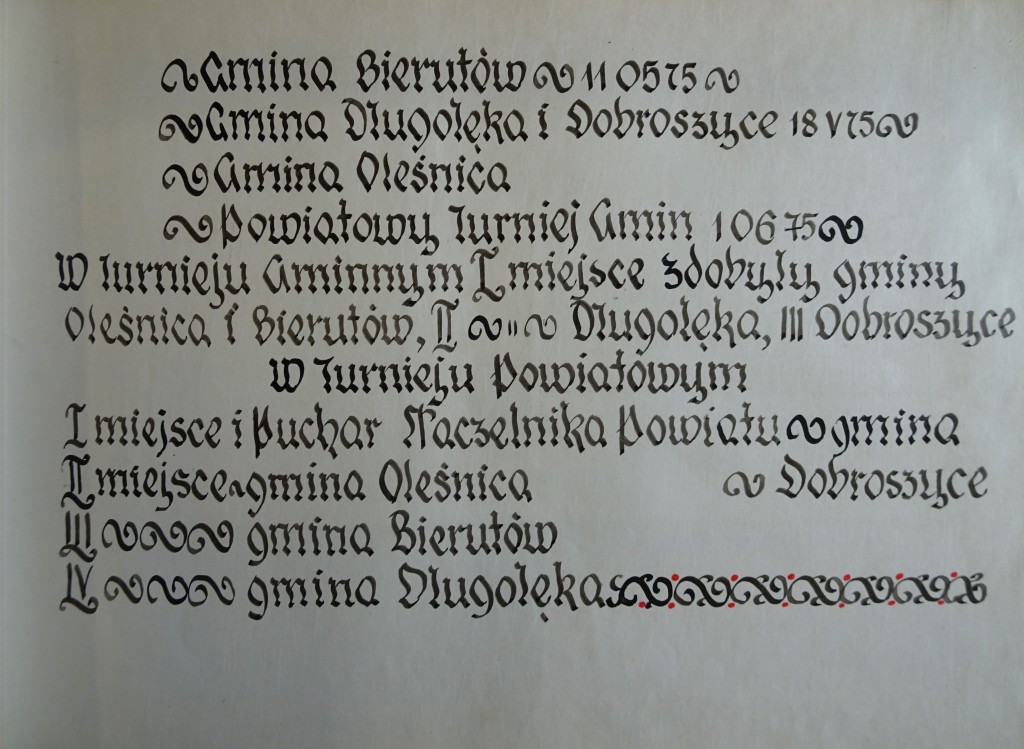 ~Gmina Bierutów ~ 11 05 75 ~
~Gmina Długołęka i Dobroszyce 18 V 75 ~
~Gmina Oleśnica
~Powiatowy Turniej Gmin 10 6 75 ~
W Turnieju Gminnym I miejsce zdobyły gminy
Oleśnica i Bierutów, II ~ " ~ Długołęka, III Dobroszyce
W Turnieju Powiatowym
I miejsce i Puchar Naczelnika Powiatu ~ gmina
II miejsce ~ gmina Oleśnica ~ Dobroszyce
III ~~~ gmina Bierutów
IV ~~~ gmina Długołęka